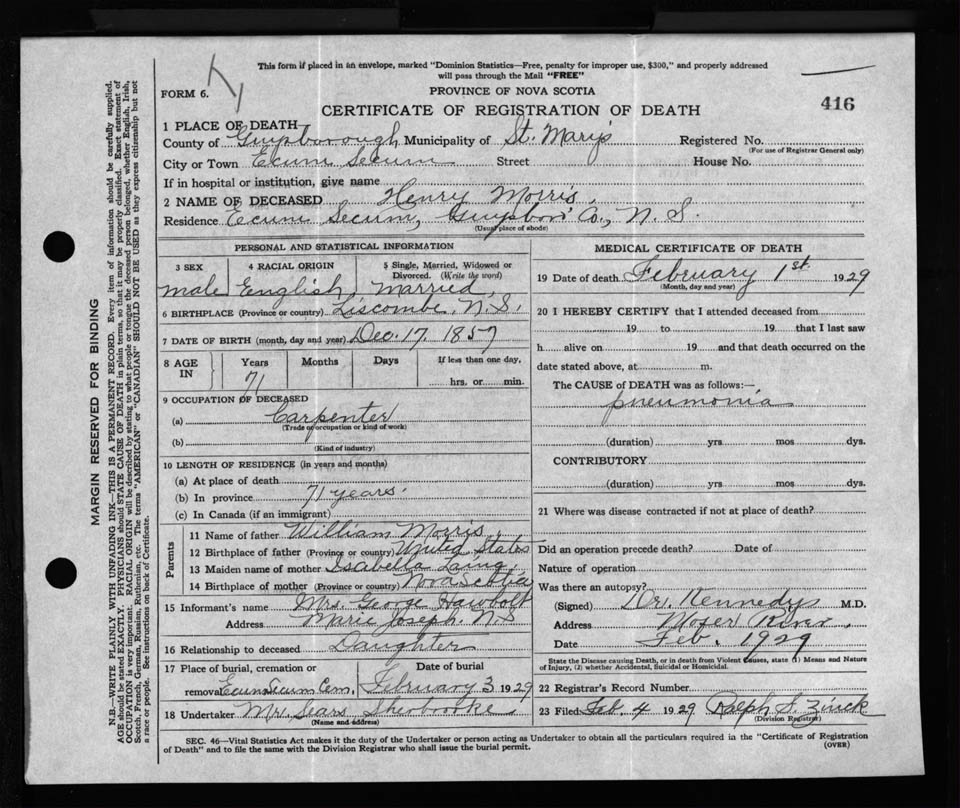 This form if placed in an envelope, marked "Dominion Statistics—Free, penalty for improper use, $300," and properly addressed
will pass through the Mail "FREE"
FORM 6.
PROVINCE OF NOVA SCOTIA
CERTIFICATE OF REGISTRATION OF DEATH
416
1 PLACE OF DEATH
County of Guysborough Municipality of St. Mary's Registered No.
(For use of Registrar General only)
City or Town Ecum Secum Street House No.
If in hospital or institution, give name
2 NAME OF DECEASED Henry Morris.
Residence Ecum Secum, Guysboro' Co., N. S.
(Usual place of abode)
PERSONAL AND STATISTICAL INFORMATION
3 SEX 4 RACIAL ORIGIN 5 Single, Married, Widowed or
Divorced. (Write the word)
male English. Married.
6 BIRTHPLACE (Province or country) Liscombe, N.S.
7 DATE OF BIRTH (month, day and year) Dec. 17, 1857
8 AGE IN Years Months Days If less than one day,
71 hrs. or min.
9 OCCUPATION OF DECEASED
(a) Carpenter
(Trade or occupation or kind of work)
(b)
(Kind of industry)
10 LENGTH OF RESIDENCE (in years and months)
(a) At place of death
(b) In province 71 years.
(c) In Canada (if an immigrant)
Parents
11 Name of father William Morris.
12 Birthplace of father (Province or country) United States
13 Maiden name of mother Isabella Laing
14 Birthplace of mother (Province or country) Nova Scotia
15 Informant's name Mrs. George Hawbolt
Address Marie Joseph. N.S
16 Relationship to deceased Daughter
17 Place of burial, cremation or Date of burial
removal Ecum Secum Cem. February 3 1929
18 Undertaker Mr. Sears Sherbrooke
(Name and address)
MEDICAL CERTIFICATE OF DEATH
19 Date of death February 1st. 1929
(Month, day and year)
20 I HEREBY CERTIFY that I attended deceased from
19 to 19 that I last saw
h alive on 19 and that death occurred on the
date stated above, at m.
The CAUSE of DEATH was as follows:—
pneumonia
(duration) yrs. mos. dys.
CONTRIBUTORY
(duration) yrs. mos. dys.
21 Where was disease contracted if not at place of death?
Did an operation precede death? Date of
Nature of operation
Was there an autopsy?
(Signed) Dr. Kennedy M.D.
Address Moser River.
Date Feb. 1929
State the Disease causing Death, or in death from Violent Causes, state (1) Means and Nature
of Injury, (2) whether Accidental, Suicidal or Homicidal.
22 Registrar's Record Number
23 Filed Feb. 4 1929 Ralph S. Zinck
(Division Registrar)
SEC. 46—Vital Statistics Act makes it the duty of the Undertaker or person acting as Undertaker to obtain all the particulars required in the "Certificate of Registration
of Death" and to file the same with the Division Registrar who shall issue the burial permit.
(OVER)
MARGIN RESERVED FOR BINDING
N.B.—WRITE PLAINLY WITH UNFADING INK—THIS IS A PERMANENT RECORD. Every item of information should be carefully supplied.
AGE should be stated EXACTLY. PHYSICIANS should STATE CAUSE OF DEATH in plain terms, so that it may be properly classified. Exact statement of
OCCUPATION is very important. RACIAL ORIGIN will be described by stating to what people or tongue the deceased person belonged, whether English, Irish,
Scotch, French, German, Russian, Ruthenian, etc. The terms "AMERICAN" or "CANADIAN" SHOULD NOT BE USED as they express citizenship but not
a race or people. See instructions on back of Certificate.